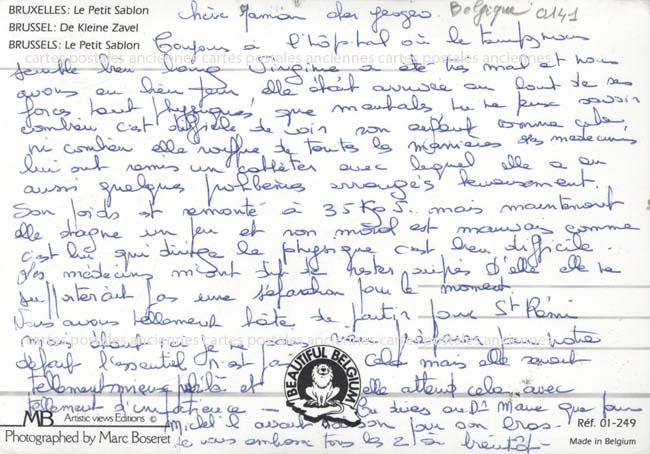 BRUXELLES: Le Petit Sablon
BRUSSEL: De Kleine Zavel
BRUSSELS: Le Petit Sablon
Belgique 0141
chère maman cher georges
Toujours à l'hôpital où le temps nous
semble bien long Virginie a été très mal et nous
avons eu bien peur elle était arrivée au bout de ses
forces tant physiques que mentales tu ne peux savoir
combien c'est difficile de voir son enfant comme cela,
ni combien elle souffre de toutes les manières des médecins
lui ont remis un cathéter avec lequel elle a eu
aussi quelques problèmes arrangés heureusement.
Son poids est remonté à 35 Kg 5. mais maintenant
elle stagne un peu et son moral est mauvais comme
c'est lui qui dirige le physique c'est bien difficile.
Les médecins m'ont dit de rester auprès d'elle elle ne
supporterait pas une séparation pour le moment.
Nous avons tellement hâte de partir pour St Rémi
notre
défaut l'essentiel n'est pas cela mais elle serait
tellement mieux et elle attend cela avec
tellement d'impatience - Tu diras au Dr que pour
Michel il avait raison pour son bras.
Je vous embrasse tous les 2 à bientôt -
cartes postales anciennes cartes postales anciennes cartes postales anciennes
cartes postales anciennes cartes postales anciennes cartes postales anciennes
BEAUTIFUL BELGIUM
MB Artistic views Editions ©
Photographed by Marc Boseret
Réf. 01-249
Made in Belgium